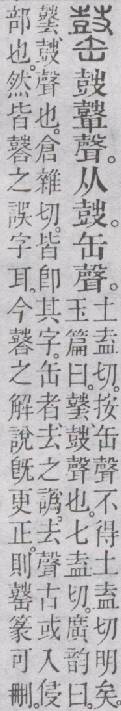 鼓聲。从鼓。缶聲。
土盍切。按缶聲不得土盍切明矣。
玉篇曰。鼓聲也。七盍切。廣韵曰。
鼓聲也。倉雜切。皆卽其字。缶者去之譌。去聲古或入侵
部也。然皆之誤字耳。今之解說旣更正。則篆可刪。